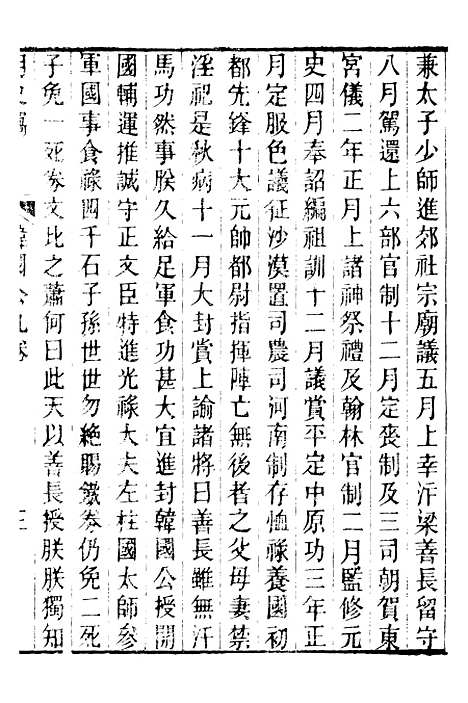 兼太子少師進郊社宗廟議五月上幸汴梁善長留守
八月駕還上六部官制十二月定喪制及三司朝賀東
宮儀二年正月上諸神祭禮及翰林官制二月監修元
史四月奉詔編祖訓十二月議賞平定中原功三年正
月定服色議征沙漠置司農司河南制存恤祿養國初
都先鋒十大元帥都尉指揮陣亡無後者之父母妻禁
淫祀是秋病十一月大封賞上諭諸將曰善長雖無汗
馬功然事朕久給足軍食功甚大宜進封韓國公授開
國輔運推誠守正文臣特進光祿大夫左柱國太師參
軍國事食祿四千石子孫世世勿絕賜鐵券仍免二死
子免一死券文比之蕭何曰此天以善長授朕朕獨知
韓國公九卷 三